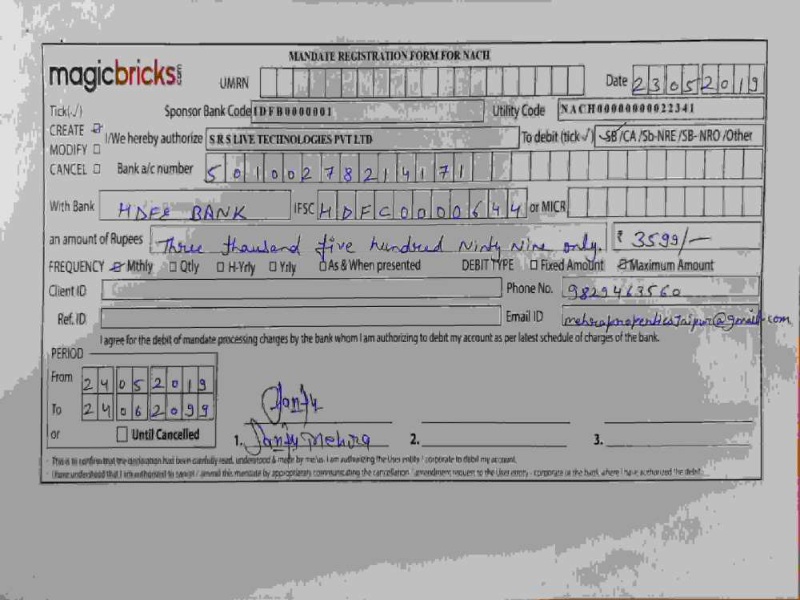 MANDATE REGISTRATION FORM FOR NACH
magicbricks.com UMRN Date 23052019
Tick(√) Sponsor Bank Code IDFB0000001 Utility Code NACH00000000022341
CREATE I/We hereby authorize SRS LIVE TECHNOLOGIES PVT LTD To debit (tick √) SB /CA /Sb-NRE /SB- NRO /Other
MODIFY
CANCEL Bank a/c number 50100278214171
With Bank HDFC BANK IFSC HDFC0000644 or MICR
an amount of Rupees Three thousand five hundred Ninty Nine only. ₹ 3599/-
FREQUENCY Mthly Qtly H-Yrly Yrly As & When presented DEBIT TYPE Fixed Amount Maximum Amount
Client ID Phone No. 9829463560
Ref. ID Email ID mehrapropertiesJaipur@gmail.com
I agree for the debit of mandate processing charges by the bank whom I am authorizing to debit my account as per latest schedule of charges of the bank.
PERIOD
From 24052019
To 24062099
or Until Cancelled 1. Sanjy Mehra 2. 3.
This is to confirm that the declaration had been carefully read, understood & made by me/us. I am authorizing the User entity / corporate to debit my account.
I have understood that I am authorized to cancel / amend this mandate by appropriately communicating the cancellation / amendment request to the User entity - corporate or the bank, where I have authorized the debit.